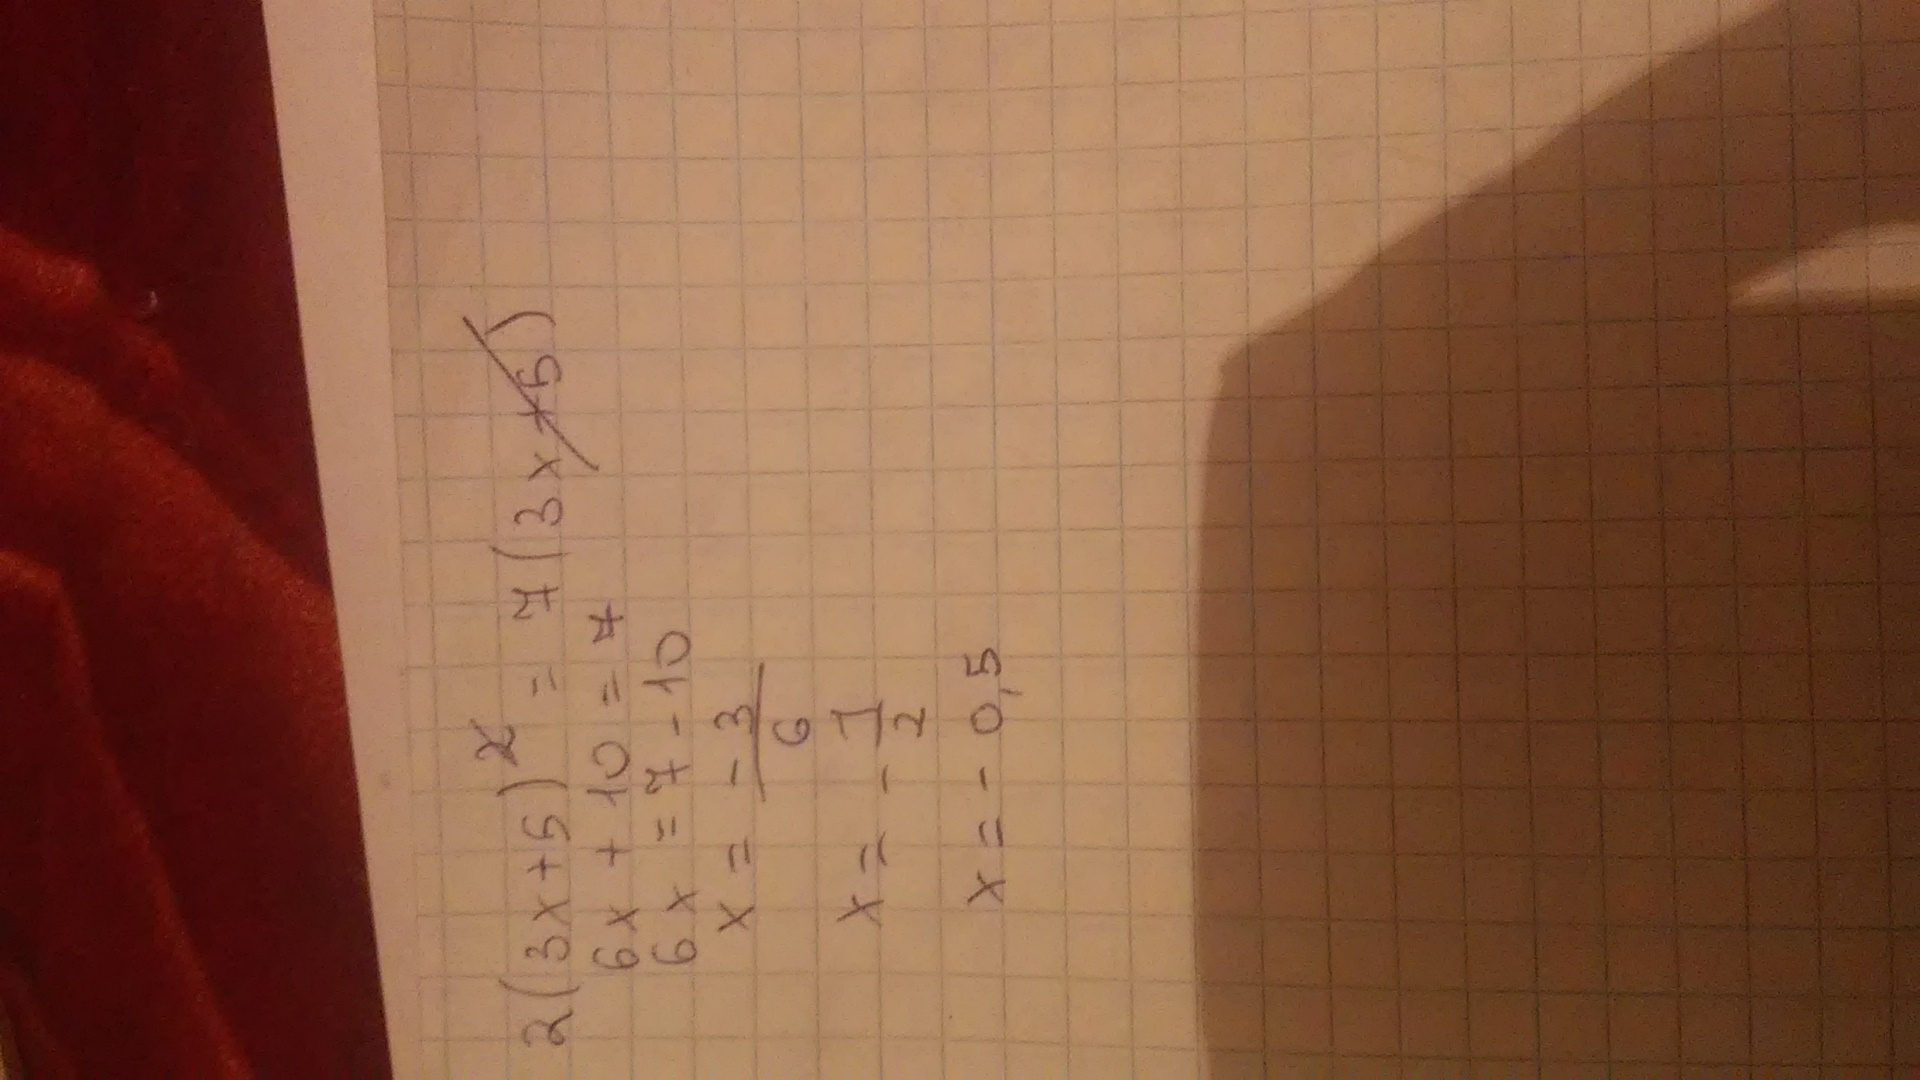 2(3x+5)² = 7(3x+5)
6x + 10 = 7
6x = 7 - 10
x = -3/6
x = - 1/2
x = - 0,5